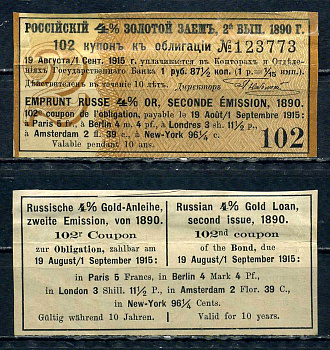 РОССІЙСКІЙ 4% ЗОЛОТОЙ ЗАЕМЪ, 2й ВЫП. 1890 Г.
102 купонъ къ облигаціи №123773
19 Августа/1 Сент. 1915 г. уплачивается въ Конторахъ и Отдѣле-
ніяхъ Государственнаго Банка 1 руб. 87½ коп. (1 р. = 1/15 имп.)
Дѣйствителенъ въ теченіе 10 лѣтъ. Директоръ
EMPRUNT RUSSE 4% OR, SECONDE ÉMISSION, 1890.
102e coupon de l'obligation, payable le 19 Août/1 Septembre 1915:
à Paris 5 fr., à Berlin 4 m. 4 pf., à Londres 3 sh. 11½ p.,
à Amsterdam 2 fl. 39 c., à New-York 96¼ c.
Valable pendant 10 ans.
102
Russische 4% Gold-Anleihe,
zweite Emission, von 1890.
102er Coupon
zur Obligation, zahlbar am
19 August/1 September 1915:
Russian 4% Gold Loan,
second issue, 1890.
102nd coupon
of the Bond, due
19 August/1 September 1915:
in Paris 5 Francs, in Berlin 4 Mark 4 Pf.,
in London 3 Shill. 11½ P., in Amsterdam 2 Flor. 39 C.,
in New-York 96¼ Cents.
Gültig während 10 Jahren.
Valid for 10 years.